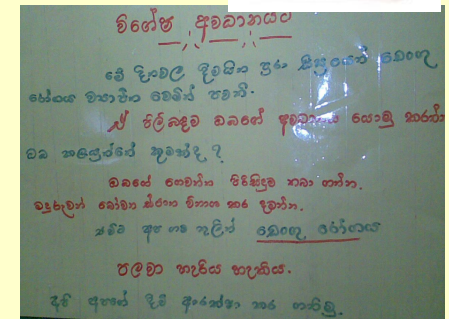 විශේෂ අවධානයට
මේ දිනවල දිවයින පුරා සීඝ්‍රයෙන් ඩෙංගු
රෝගය ව්‍යාප්ත වෙමින් පවතී.
ඒ පිලිබඳව ඔබගේ අවධානය යොමු කරන්න
ඔබ කලයුත්තේ කුමක්ද ?
ඔබගේ ගෙවත්ත පිරිසිදුව තබා ගන්න.
මදුරුවන් බෝවන ස්ථාන විනාශ කර දමන්න.
එවිට අප ගම තුලින් ඩෙංගු රෝගය
පලවා හැරිය හැකිය.
අපි අපගේ දිවි ආරක්ෂා කර ගනිමු.